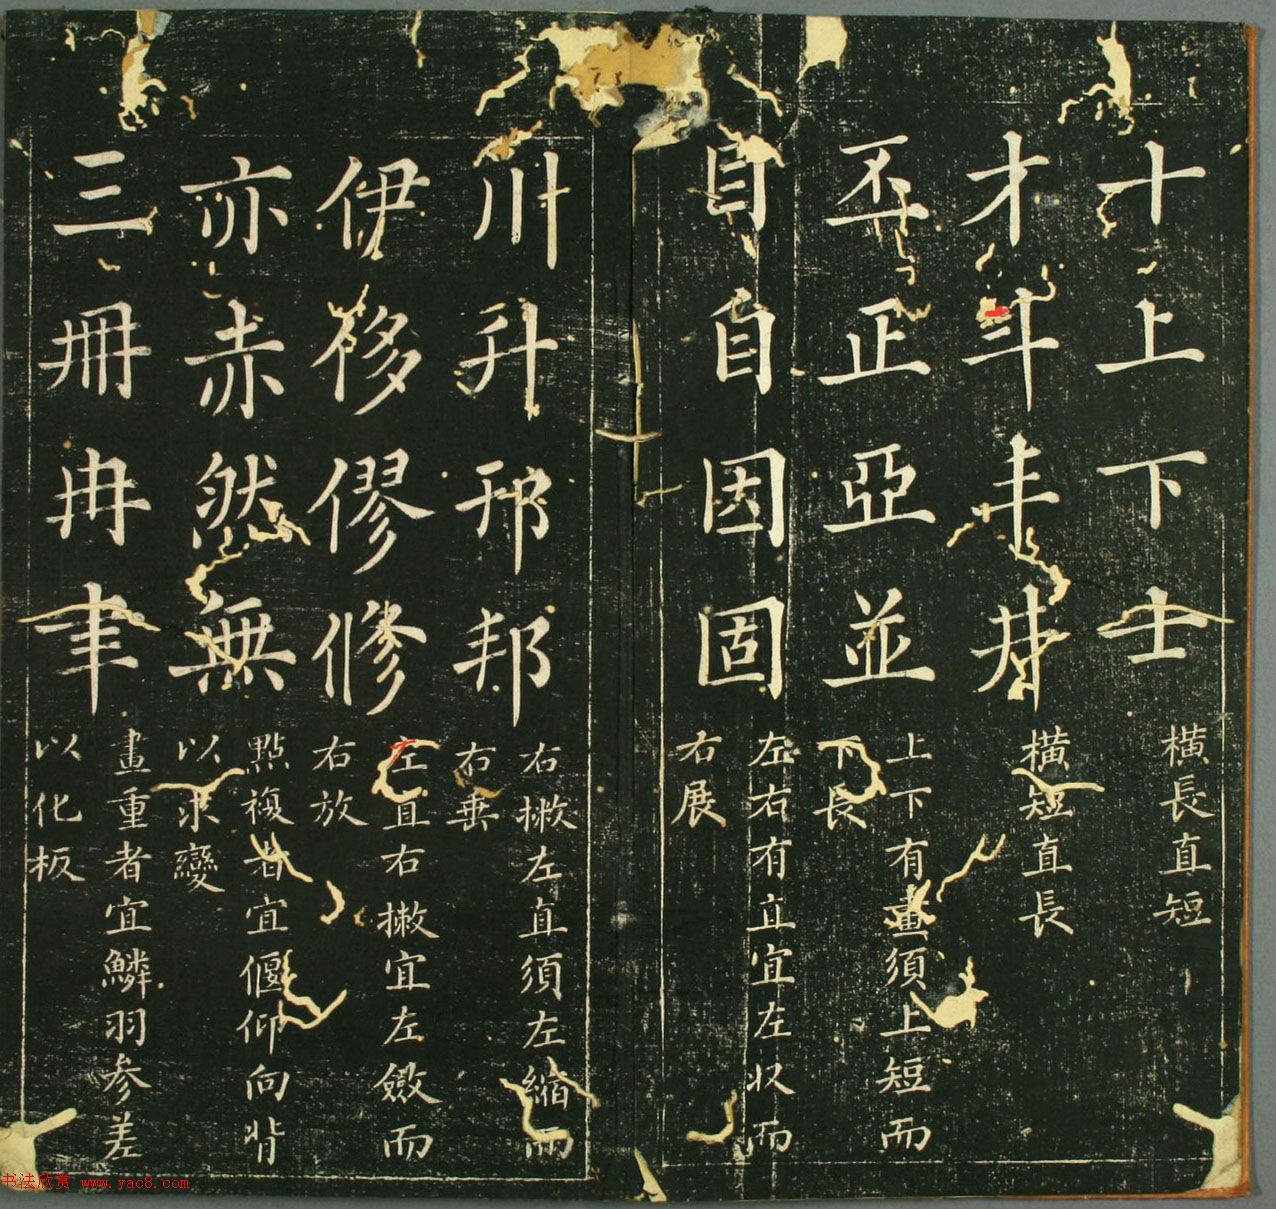 十上下士
横長直短
才斗丰井
橫短直長
丕正亞並
上下有畫須上短而
下長
目自因固
左右有直宜左收而
右展
川升邘邦
右撇左直須左縮而
右垂
伊侈僇修
左直右撇宜左斂而
右放
亦赤然無
點複者宜偃仰向背
以求變
三冊冉聿
畫重者宜鱗羽參差
以化板
书法欣赏 www.yac8.com